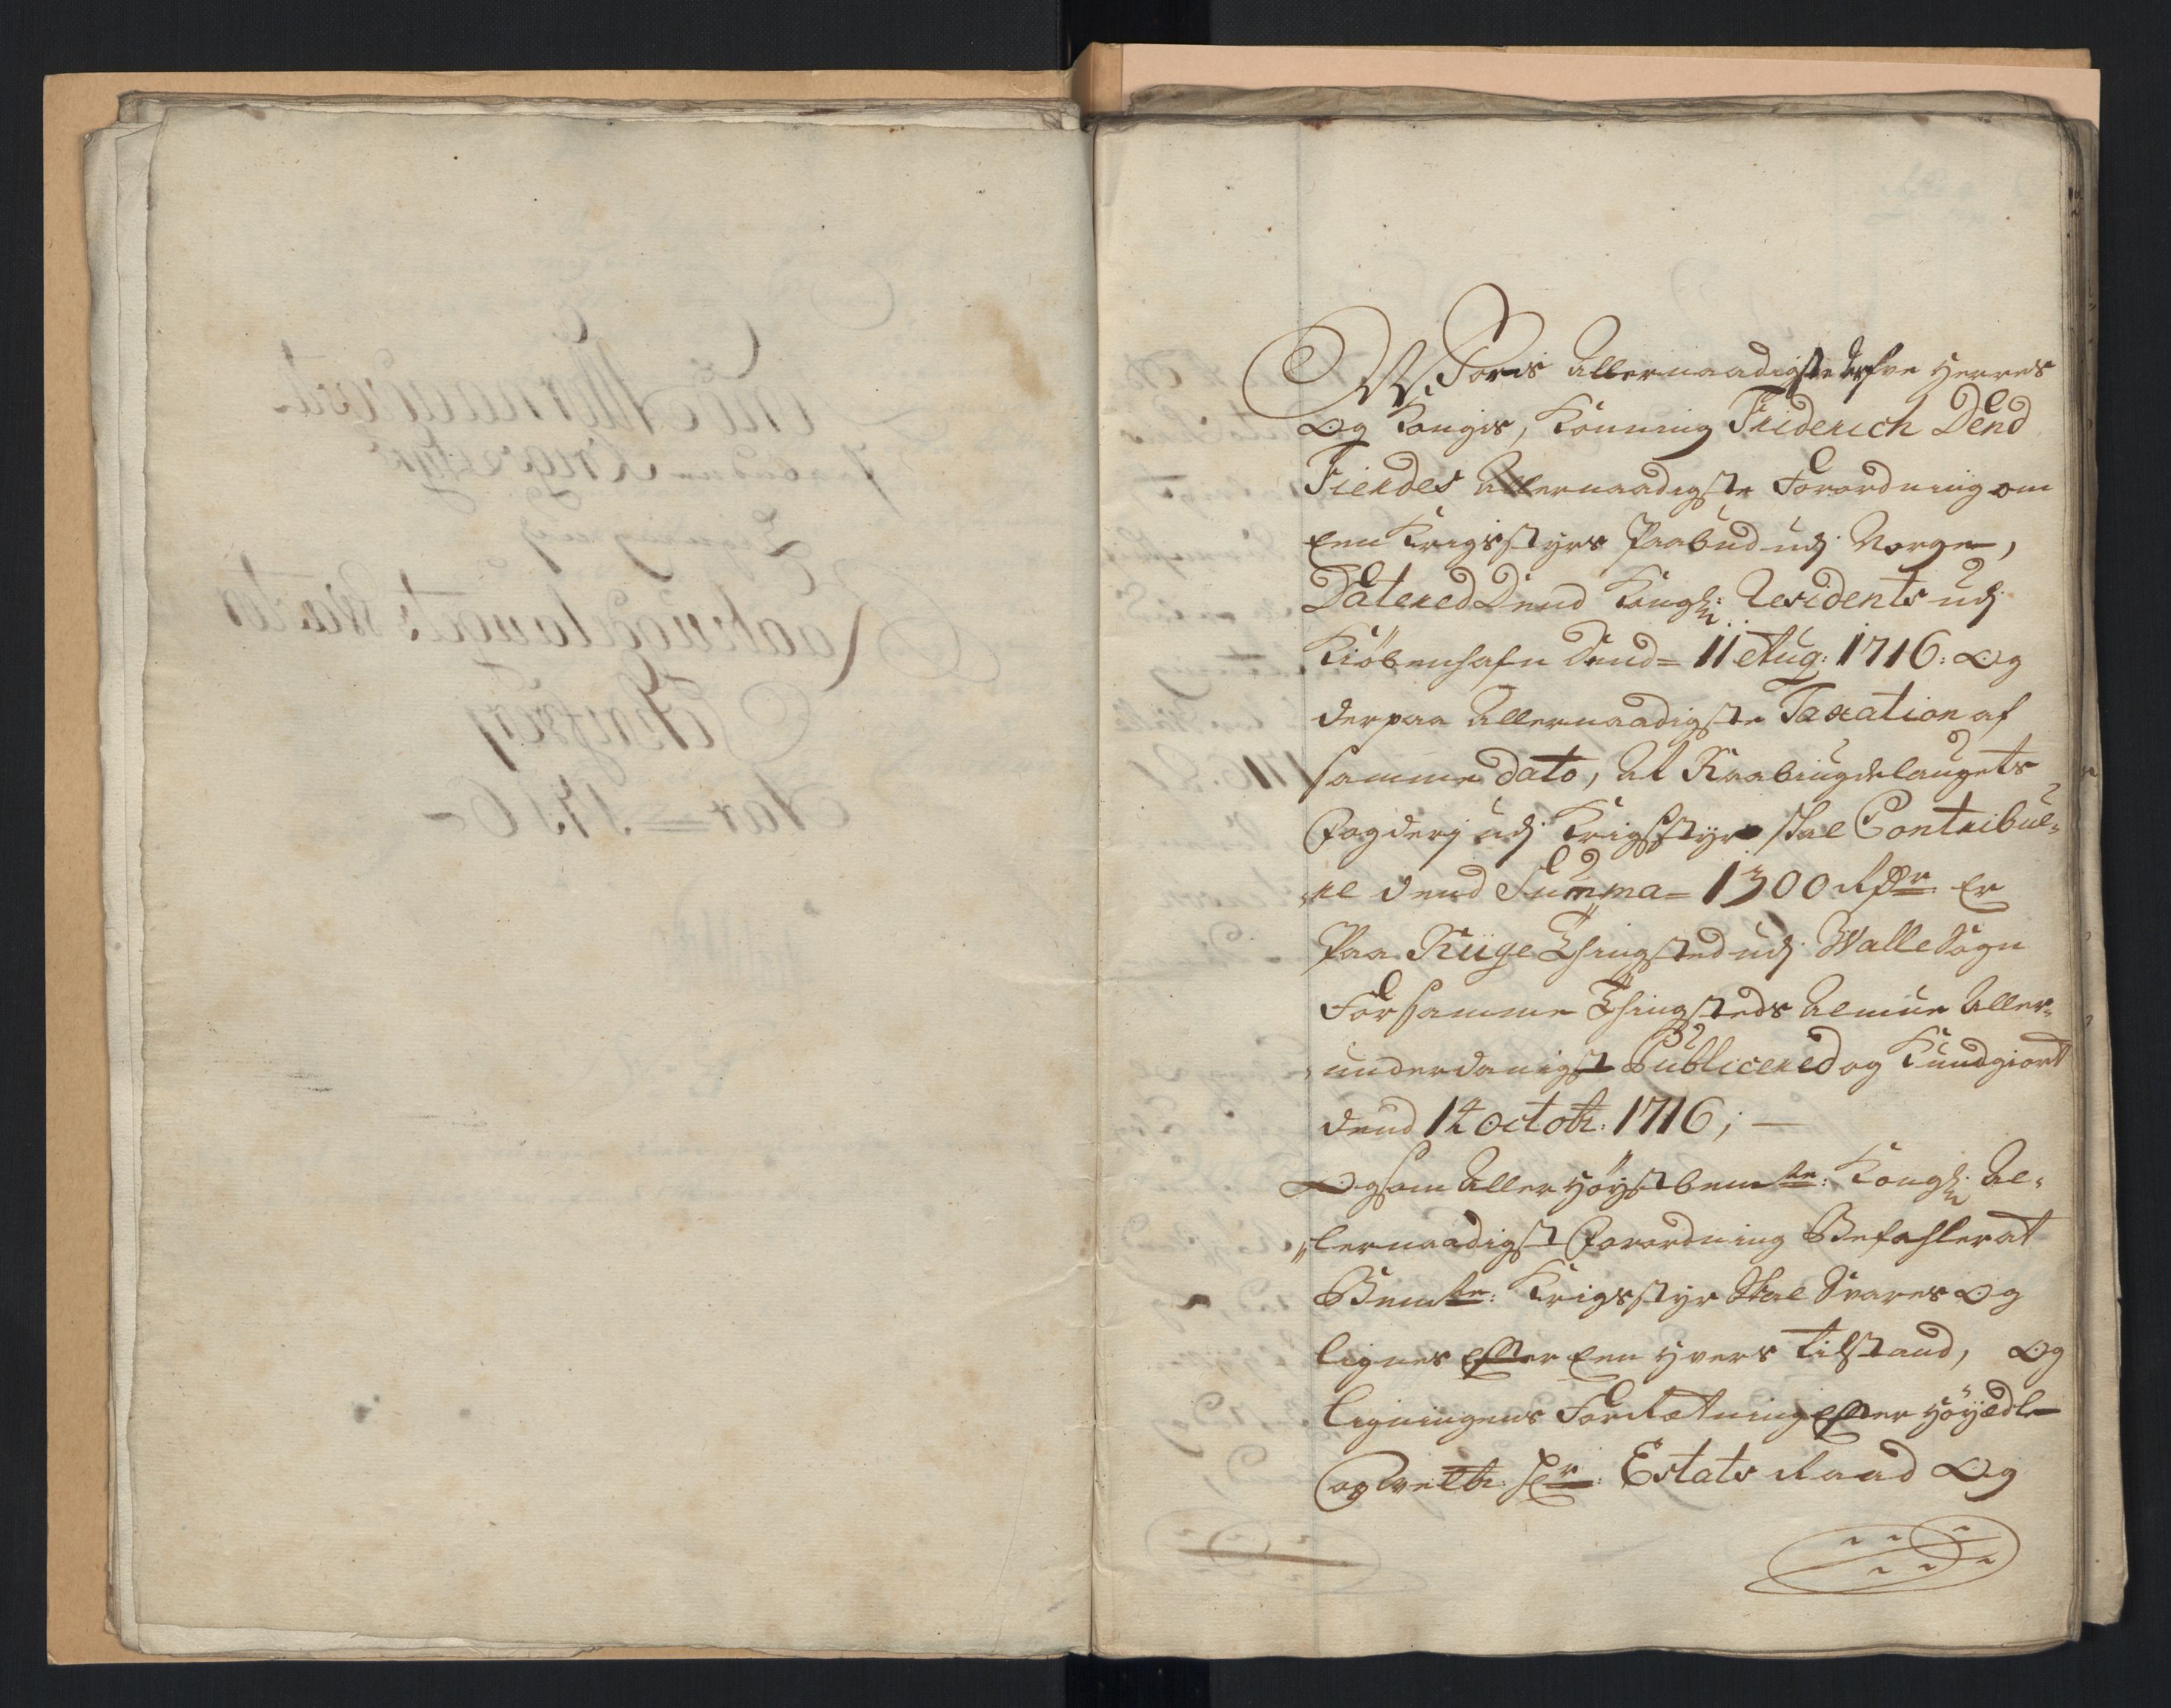 Woris Allernaadigste Arfve Herres
Og Kongis, Konning Friderich Dend
Fierdes Allernaadigste Forordning om
Een Krigsstyrs Paabud udj Norge,
Datered Dend Kongl: Residents udj
Kiöbenhafn Dend= 11 Aug: 1716: Og
derpaa Allernaadigste Taxation af
samme Dato, At Raabiugdelaugets
Fogderj udj Krigsstyr skal Contribue-
re dend Summa= 1300 Rdr. Er
Paa Riige Thingsted udj Walle Sogn
For samme Thingsteds Almue Aller-
underdanigst Publicered og Kundgiort
dend 14 Octobr: 1716; —
Og som Allerhöystbemte: Kongl: Al-
lernaadigst Forordning Befahler at
Bemte: Krigsstyr Skal Svares Og
lignes efter Een hvers tilstand, Og
ligningens Forfatning efter Höyædle
og velb: Hr: Estats Raad Og